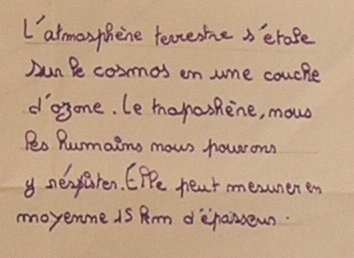 L'atmosphère terrestre s'étale
sur le cosmos en une couche
d'ozone. Le trapashène, nous
les humains nous pouvons
y réspister. Élle peut mesurer en
moyenne 15 km d'épasseur.